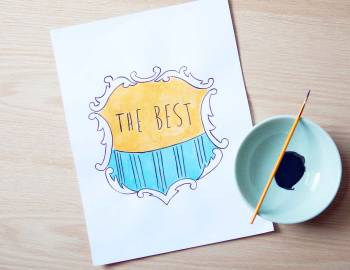 THE BEST